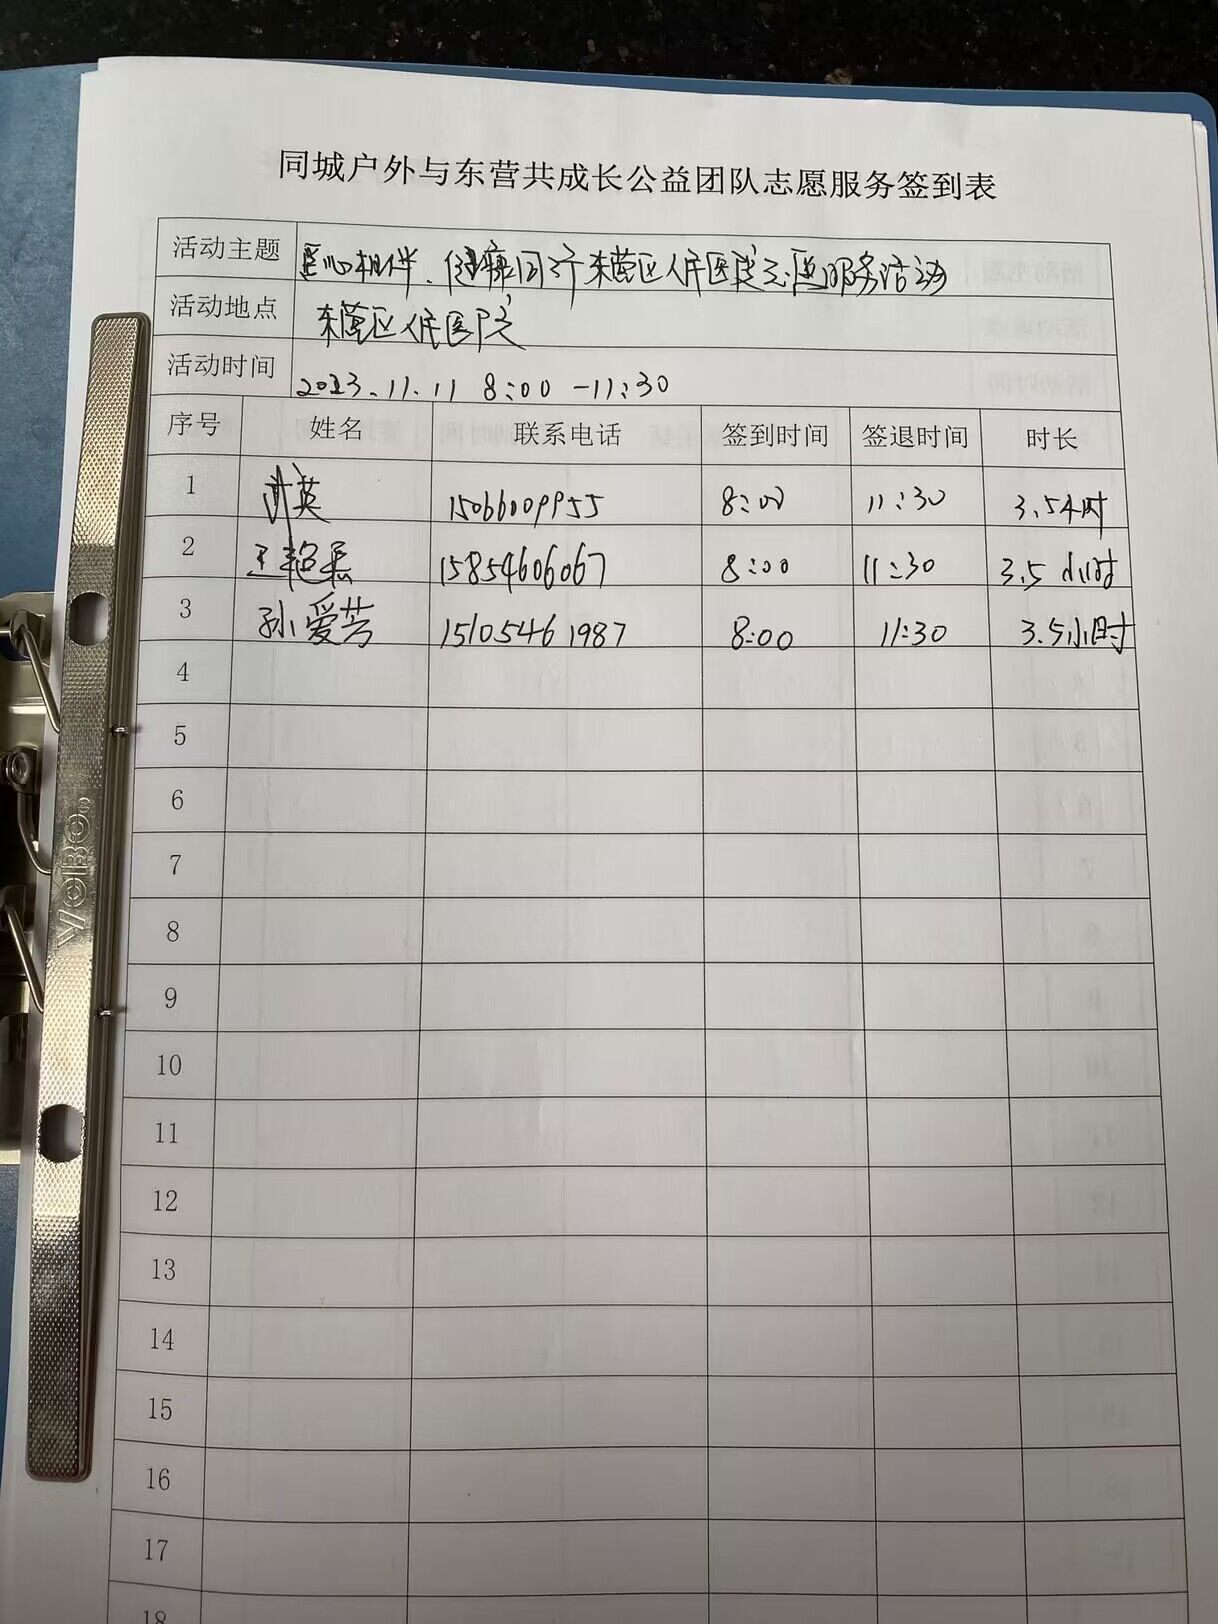 同城户外与东营共成长公益团队志愿服务签到表
活动主题 医心相伴、健康同行 东营区人民医院志愿服务活动
活动地点 东营区人民医院
活动时间 2023.11.11 8:00-11:30
序号 姓名 联系电话 签到时间 签退时间 时长
1 英 15066009955 8:00 11:30 3.5小时
2 王艳 15854606067 8:00 11:30 3.5小时
3 孙爱芳 15105461987 8:00 11:30 3.5小时
4
5
6
7
8
9
10
11
12
13
14
15
16
17
18
WOBO